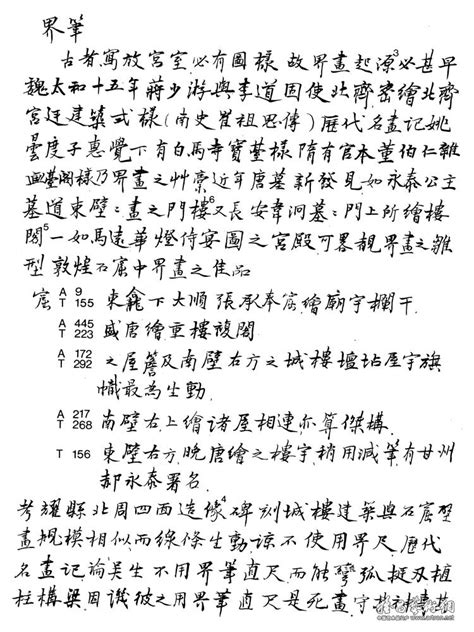 界筆⁴
古者寫放宮室必有圖樣故界畫起源³必甚早
魏太和十五年蔣少游與李道固使北齊密繪北齊
宮廷建築式樣(南史崔祖思傳)歷代名畫記姚
曇度子惠覺下有白馬寺寶臺樣隋有官本董伯仁雜
畫臺閣樣乃界畫之艸稾近年唐墓新發見如永泰公主
墓道東壁壁畫之門樓⁶又長安韋泂墓墓門上所繪樓
閣⁵一如馬遠華燈侍宴圖之宮殿可畧覩界畫之雛
型敦煌石窟中界畫之佳品
窟 A 9 T 155 東龕下大順張承奉窟繪廟宇欄干
A 445 T 223 盛唐繪重樓複閣
A 172 T 292 之屋簷及南壁右方之城樓壇坫屋宇旗
幟最為生動
A 217 T 268 南壁右上繪諸屋相連亦算傑構
T 156 東壁右方晚唐繪之樓宇稍用減筆有甘州
郝永泰署名
考耀縣北周四面造像⁴碑刻城樓建築與石窟壁
畫規模相似而線條生動諒不使用界尺歷代
名畫記論吳生不用界筆直尺而能彎弧挺刃植
柱構梁因譏彼之用界筆直尺是死畫守